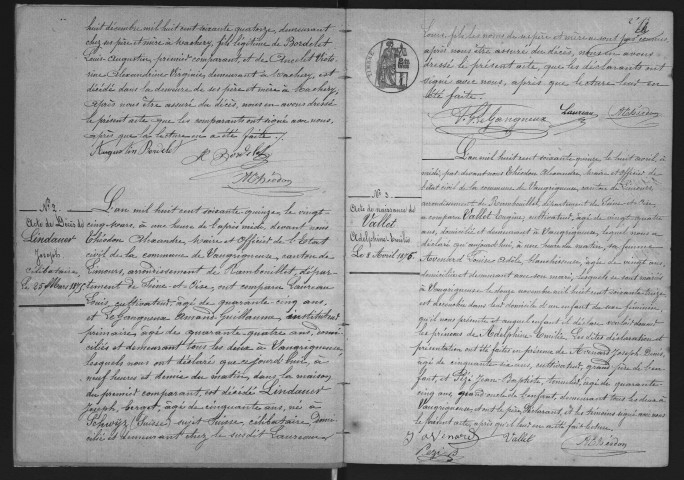 huit décembre mil huit cent soixante quatorze, demeurant
chez ses père et mère à Machery, fils légitime de Bordelet
Louis Augustin, premier comparant, et de Anclet Victo
rine Alexandrine Virginie, demeurant à Machery, est
décédé dans la demeure de ses père et mère à Machery.
Après nous être assuré du décès, nous en avons dressé
le présent acte que les comparants ont signé avec nous,
après que lecture en a été faite.
N° 2
Acte de Décès de
Lindauer
Joseph
célibataire,
Le 25 Mars 1875
L'an mil huit cent soixante quinze, le vingt-
cinq Mars, à une heure de l'après midi, devant nous
Théodon Alexandre, Maire et Officier de l'Etat
civil de la commune de Vaugrigneuse, canton de
Limours, arrondissement de Rambouillet, dépar-
tement de Seine et Oise, ont comparu Laureau
Louis, cultivateur, âgé de quarante cinq ans,
et Legangneux Armand Guillaume, instituteur
primaire, âgé de quarante quatre ans, domi-
ciliés et demeurant tous les deux à Vaugrigneuse,
lesquels nous ont déclaré que ce jourd'hui, à
neuf heures et demie du matin, dans la maison
du premier comparant, est décédé Lindauer
Joseph, berger, âgé de cinquante ans, né à
Schwyz (Suisse) sujet Suisse, célibataire, domi-
cilié et demeurant chez le susdit Laureau
dont les noms de ses père et mère ne sont pas connus
après nous être assuré du décès, nous en avons
dressé le présent acte, que les déclarants ont
signé avec nous, après que lecture leur en
a été faite.
Laureau
Théodon
N° 3
Acte de naissance de
Vallet
Adelphine Emilie
Le 8 Avril 1875
L'an mil huit cent soixante quinze, le huit avril, à
midi, par devant nous Théodon Alexandre, maire et officier de
l'état civil de la commune de Vaugrigneuse, canton de Limours
arrondissement de Rambouillet, département de Seine et Oise,
a comparu Vallet Eugène, cultivateur, âgé de vingt quatre
ans, domicilié et demeurant à Vaugrigneuse, lequel nous a
déclaré qu'aujourd'hui, à une heure du matin, sa femme
Louise Adèle, blanchisseuse, âgée de vingt ans,
domiciliée et demeurant avec son mari, lesquels se sont mariés
à Vaugrigneuse
est accouchée dans leur domicile d'un enfant du sexe féminin,
qu'il nous présente et auquel enfant il déclare vouloir donner
les prénoms de Adelphine Emilie. Les dites déclaration et
présentation ont été faites en présence de Joseph Louis,
cultivateur, grand père de l'en-
fant, et Pézé Jean Baptiste, âgé de quarante
cinq ans, grand oncle de l'enfant, demeurant tous les deux à
Vaugrigneuse, dont le père déclarant, et les témoins signé avec nous
le présent acte, après qu'il leur en a été fait lecture.
Vallet
Théodon
Pézé